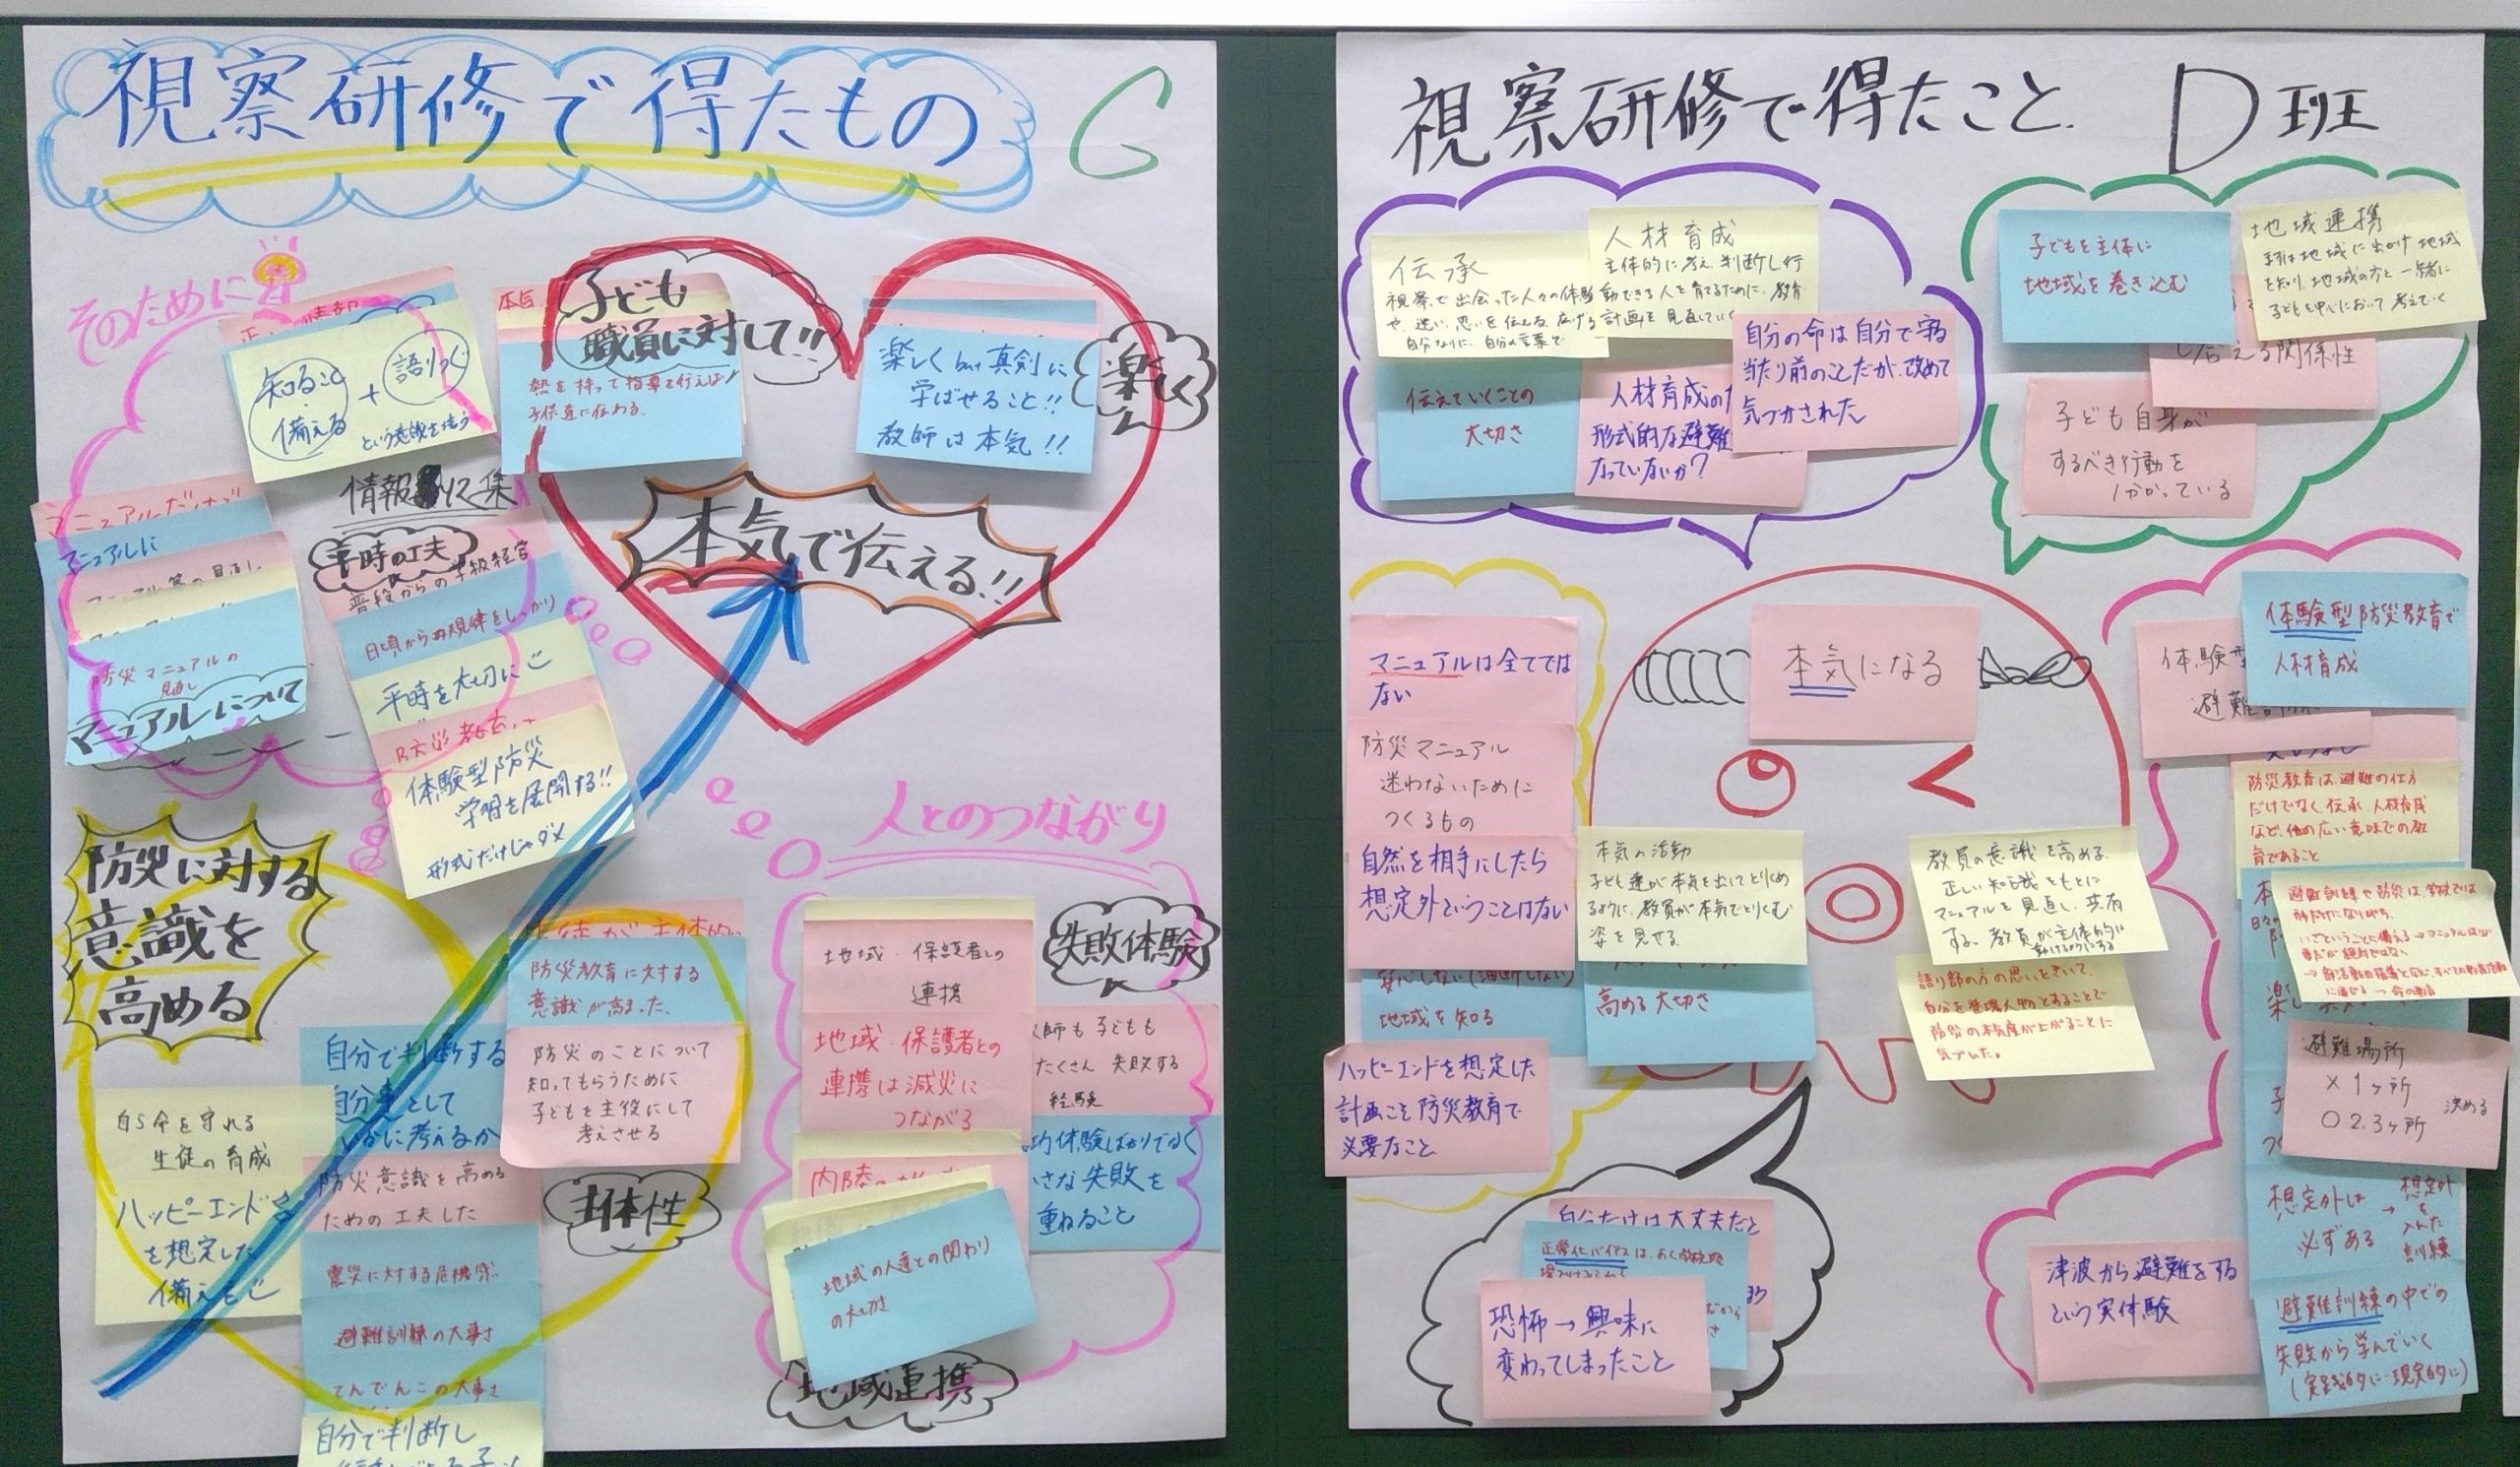 視察研修で得たもの
G
そのために
知ること
備える
+
語りつぐ
という意識を培う
情報収集
マニュアルだけで
マニュアルに
防災マニュアルの
見直し
マニュアルについて
平時の工夫
普段からの学級経営
日頃から規律をしっかり
平時を大切に
体験型防災
学習を展開する!!
形式だけじゃダメ
本気
子ども
職員に対して!!
熱を持って指導を行えば
子供達に伝わる。
楽しくbut真剣に
学ばせること!!
教師は本気!!
楽しく
本気で伝える!!
防災に対する
意識を
高める
自ら命を守れる
生徒の育成
ハッピーエンド
を想定した
備えを
自分で判断する
自分事として
いかに考えるか
防災意識を高める
ための工夫した
震災に対する危機感
避難訓練の大事さ
てんでんこの大事さ
自分で判断し
防災教育に対する
意識が高まった。
防災のことについて
知ってもらうために
子どもを主役にして
考えさせる
主体性
人とのつながり
地域・保護者との
連携
地域・保護者との
連携は減災に
つながる
内陸の
地域の人達との関わり
の大切さ
地域連携
失敗体験
師も子どもも
たくさん失敗する
経験
功体験ばかりでなく
さな失敗を
重ねること
視察研修で得たこと D班
伝承
視察で出会った人々の体験
や、迷い、思いを伝える、広げる
自分なりに、自分の言葉で
人材育成
主体的に考え、判断し行
動できる人を育てるために、教育
計画を見直していく
伝えていくことの
大切さ
人材育成の
形式的な避難
なっていないか?
自分の命は自分で守る
当たり前のことだが、改めて
気づかされた
子どもを主体に
地域を巻き込む
地域連携
まずは地域に出かけ地域
を知り、地域の方と一緒に
子どもを中心において考えていく
し合える関係性
子ども自身が
するべき行動を
分かっている
マニュアルは全てでは
ない
防災マニュアル
迷わないために
つくるもの
自然を相手にしたら
想定外ということはない
安心しない(油断しない)
地域を知る
ハッピーエンドを想定した
計画こそ防災教育で
必要なこと
本気になる
本気の活動
子ども達が本気を出してとりくめ
るように、教員が本気でとりくむ
姿を見せる
高める大切さ
教員の意識を高める。
正しい知識をもとに
マニュアルを見直し、共有
する。教員が主体的に
動けるようにする
語り部の方の思いをきいて、
自分を登場人物とすることで
防災の本気度が上がることに
気づいた。
体験型防災教育で
人材育成
体験型
避難
防災教育は、避難の仕方
だけでなく、伝承、人材育成
など、他の広い意味での教
育であること
避難場所
×1ヶ所
○2.3ヶ所
決める
想定外は
必ずある
→
想定外
を
入れた
訓練
避難訓練の中での
失敗から学んでいく
(実践的に・現実的に)
津波から避難をする
という実体験
自分だけは大丈夫だと
正常化バイアスは、
恐怖→興味に
変わってしまったこと